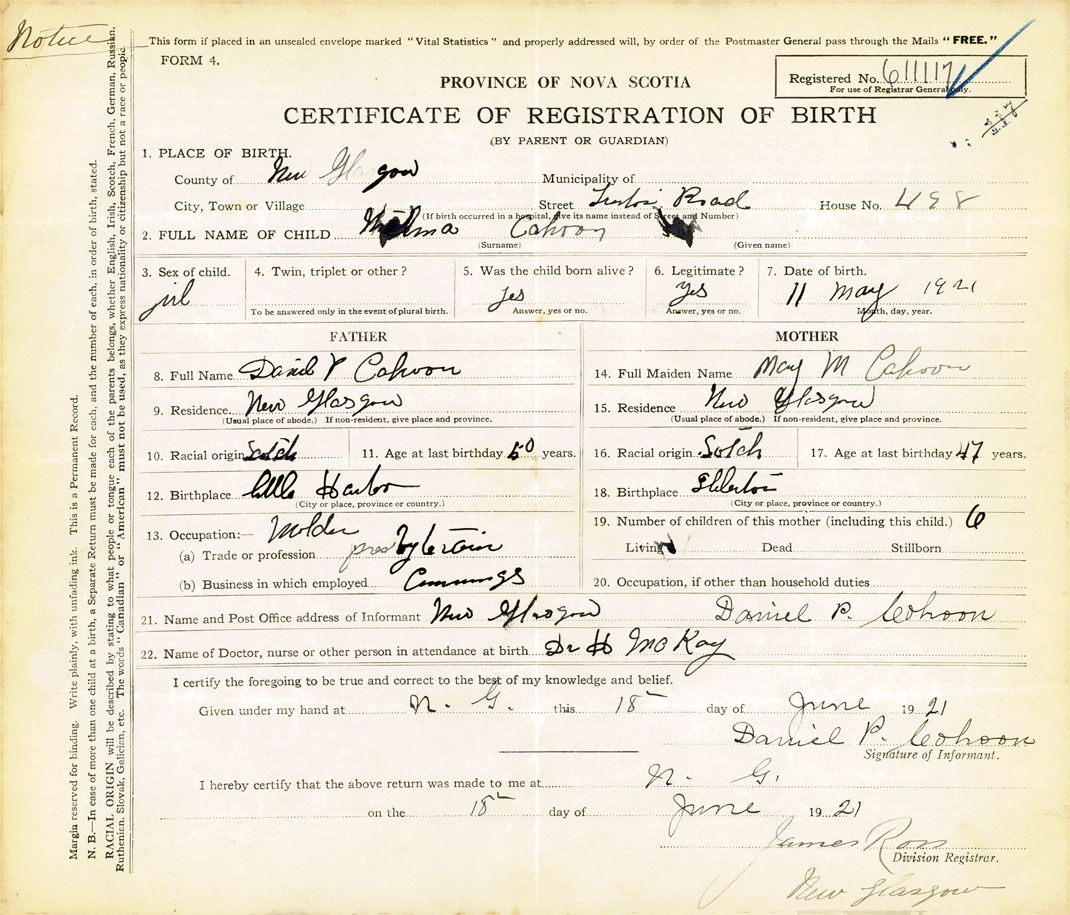 Notice
This form if placed in an unsealed envelope marked "Vital Statistics" and properly addressed will, by order of the Postmaster General pass through the Mails "FREE."
FORM 4.
Registered No. 611117
For use of Registrar General only.
PROVINCE OF NOVA SCOTIA
CERTIFICATE OF REGISTRATION OF BIRTH
(BY PARENT OR GUARDIAN)
1. PLACE OF BIRTH.
County of New Glasgow Municipality of
City, Town or Village Street Road House No. 498
(If birth occurred in a hospital, give its name instead of Street and Number)
2. FULL NAME OF CHILD Thelma Cahoon
(Surname) (Given name)
3. Sex of child. 4. Twin, triplet or other? 5. Was the child born alive? 6. Legitimate? 7. Date of birth.
jirl yes yes 11 May 1921
To be answered only in the event of plural birth. Answer, yes or no. Answer, yes or no. Month, day, year.
FATHER
8. Full Name Daniel P Cahoon
9. Residence New Glasgow
(Usual place of abode.) If non-resident, give place and province.
10. Racial origin Scotch 11. Age at last birthday 50 years.
12. Birthplace little Harbor
(City or place, province or country.)
13. Occupation:— Molder
(a) Trade or profession presbyterian
(b) Business in which employed Cummings
MOTHER
14. Full Maiden Name May M Cahoon
15. Residence New Glasgow
(Usual place of abode.) If non-resident, give place and province.
16. Racial origin Sotch 17. Age at last birthday 47 years.
18. Birthplace
(City or place, province or country.)
19. Number of children of this mother (including this child.) 6
Living Dead Stillborn
20. Occupation, if other than household duties
21. Name and Post Office address of Informant New Glasgow Daniel P. Cohoon
22. Name of Doctor, nurse or other person in attendance at birth. Dr H McKay
I certify the foregoing to be true and correct to the best of my knowledge and belief.
Given under my hand at N. G. this 18 day of June 1921
Daniel P. Cohoon
Signature of Informant.
I hereby certify that the above return was made to me at N. G.
on the 18 day of June 1921
James Ross
Division Registrar.
New Glasgow
Margin reserved for binding. Write plainly, with unfading ink. This is a Permanent Record.
N. B.—In case of more than one child at a birth, a Separate Return must be made for each, and the number of each, in order of birth, stated.
RACIAL ORIGIN will be described by stating to what people or tongue each of the parents belongs, whether English, Irish, Scotch, French, German, Russian,
Ruthenian, Slovak, Galician, etc. The words "Canadian" or "American" must not be used, as they express nationality or citizenship but not a race or people.